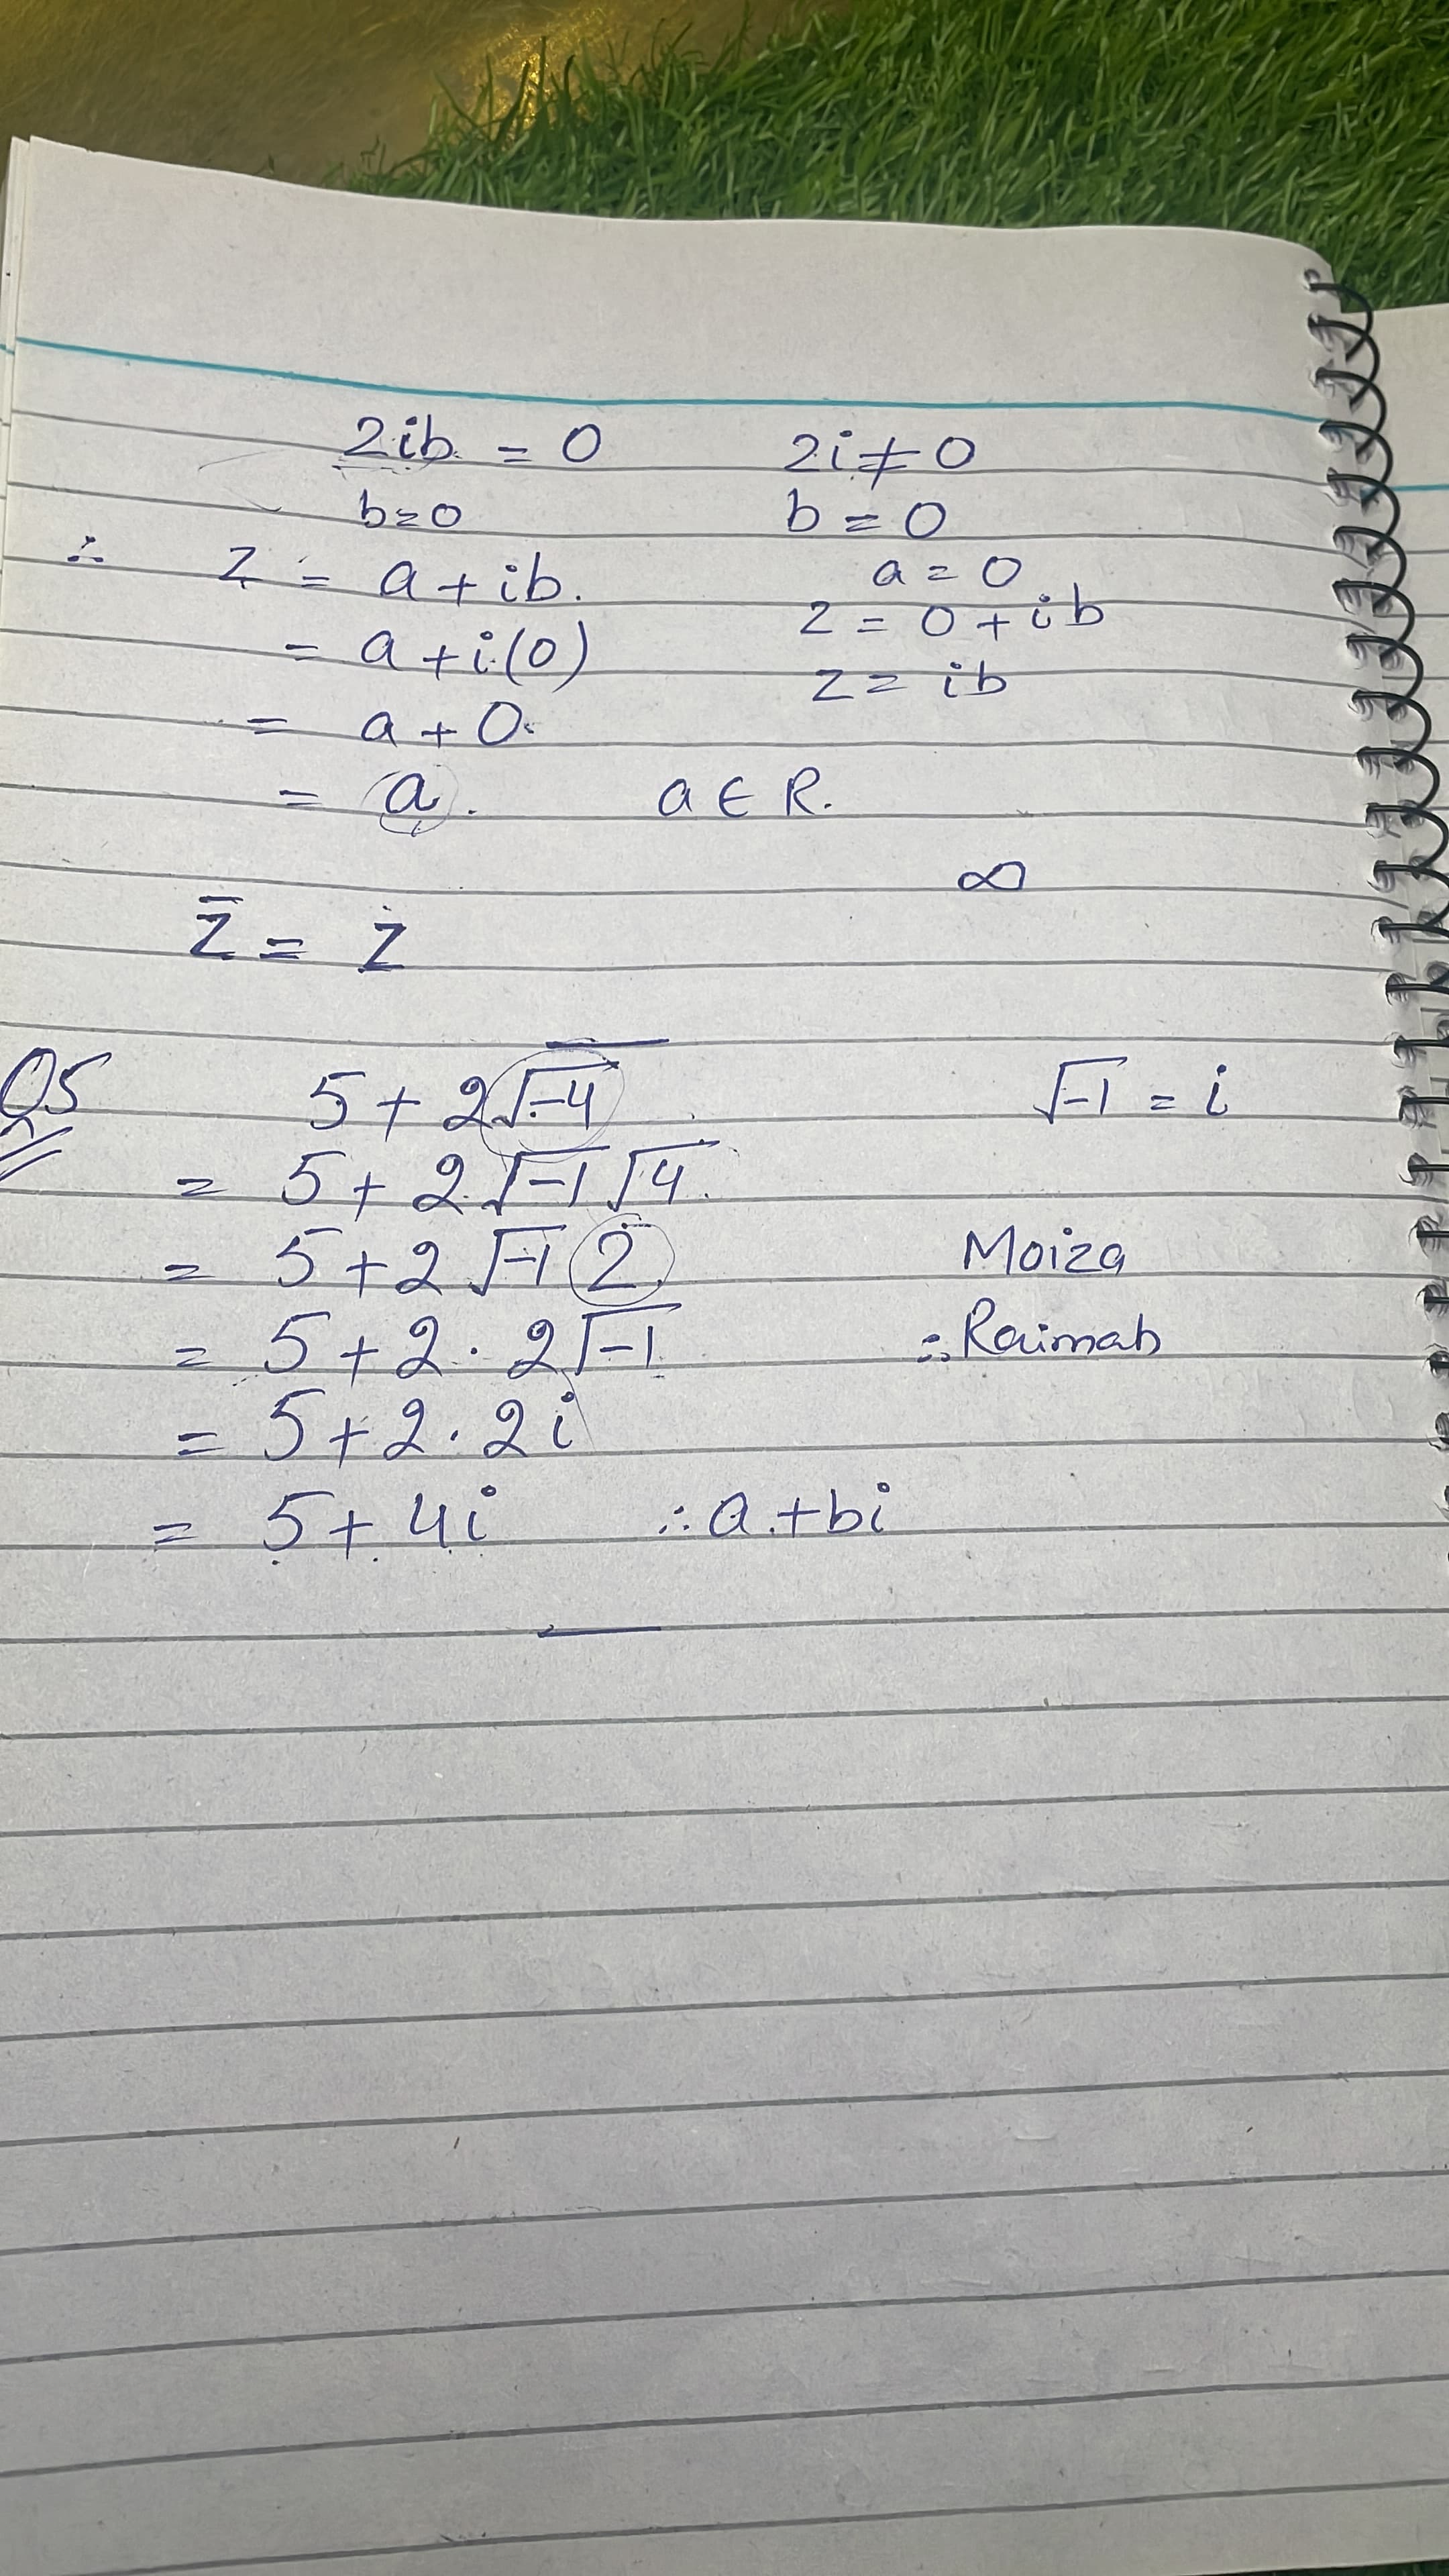 2ib = 0    2i ≠ 0
b=0    b = 0
∴ z = a + ib.    a = 0
= a + i(0)    z = 0 + ib
= a + 0.    z = ib
= a.    a ∈ R.
∞
z̄ = z
Q5    5 + 2√-4    √-1 = i
= 5 + 2√-1 √4.
= 5 + 2√-1 2    Moiza
= 5 + 2 · 2√-1    ∴ Raimah
= 5 + 2 · 2i
= 5 + 4i    ∴ a + bi